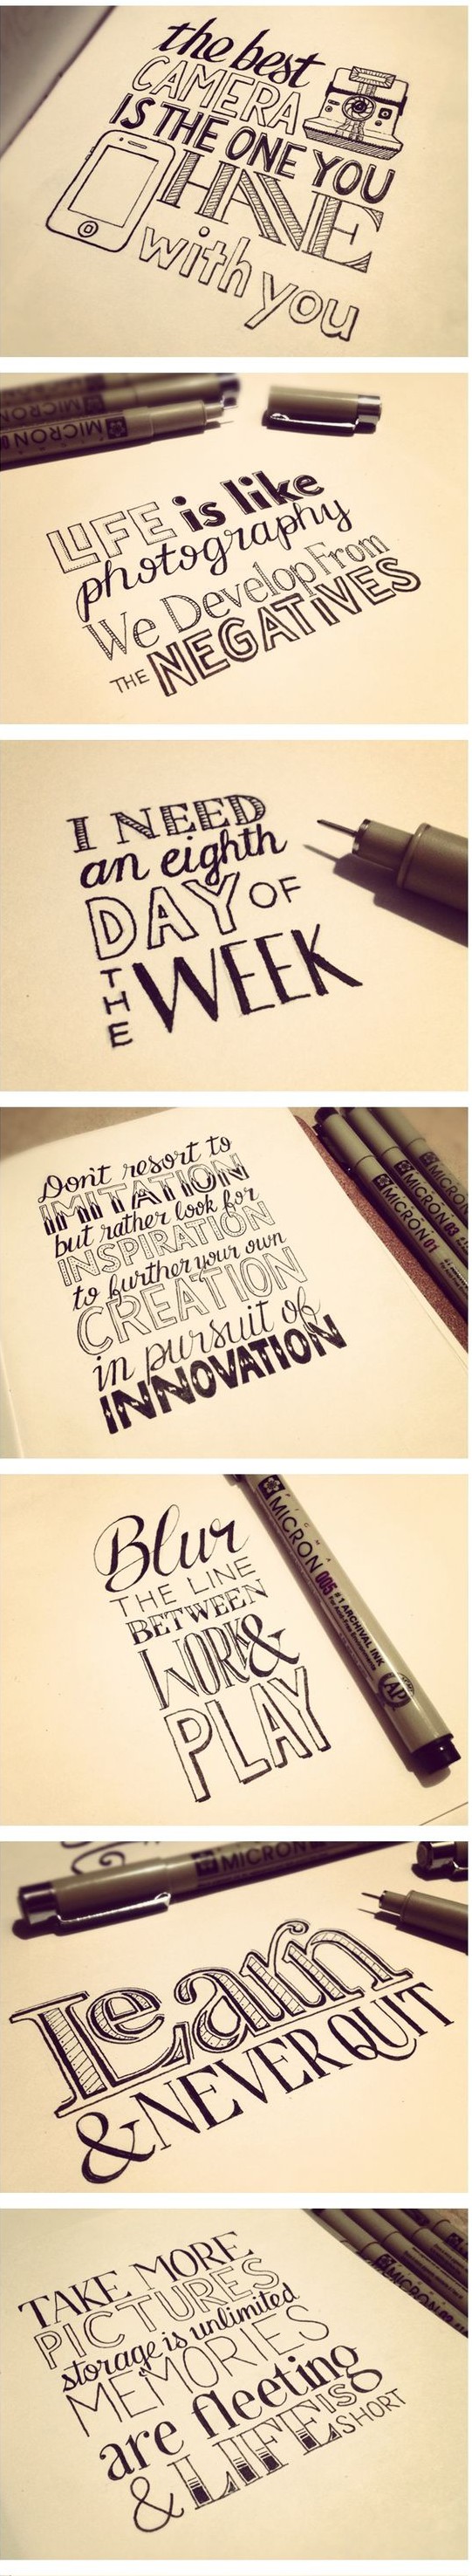 the best
CAMERA
IS THE ONE YOU
HAVE
with you
MICRON
MICRON
LIFE is like
photography
We Develop From
THE NEGATIVES
I NEED
an eighth
DAY OF
THE WEEK
Don't resort to
IMITATION
but rather look for
INSPIRATION
to further your own
CREATION
in pursuit of
INNOVATION
MICRON 01
MICRON 03
MICRON
Blur
THE LINE
BETWEEN
WORK &
PLAY
PIGMA
MICRON 005 #1 ARCHIVAL INK
AP
MICRON
Learn
& NEVER QUIT
TAKE MORE
PICTURES
storage is unlimited
MEMORIES
are fleeting
& LIFE IS
SHORT
MICRON